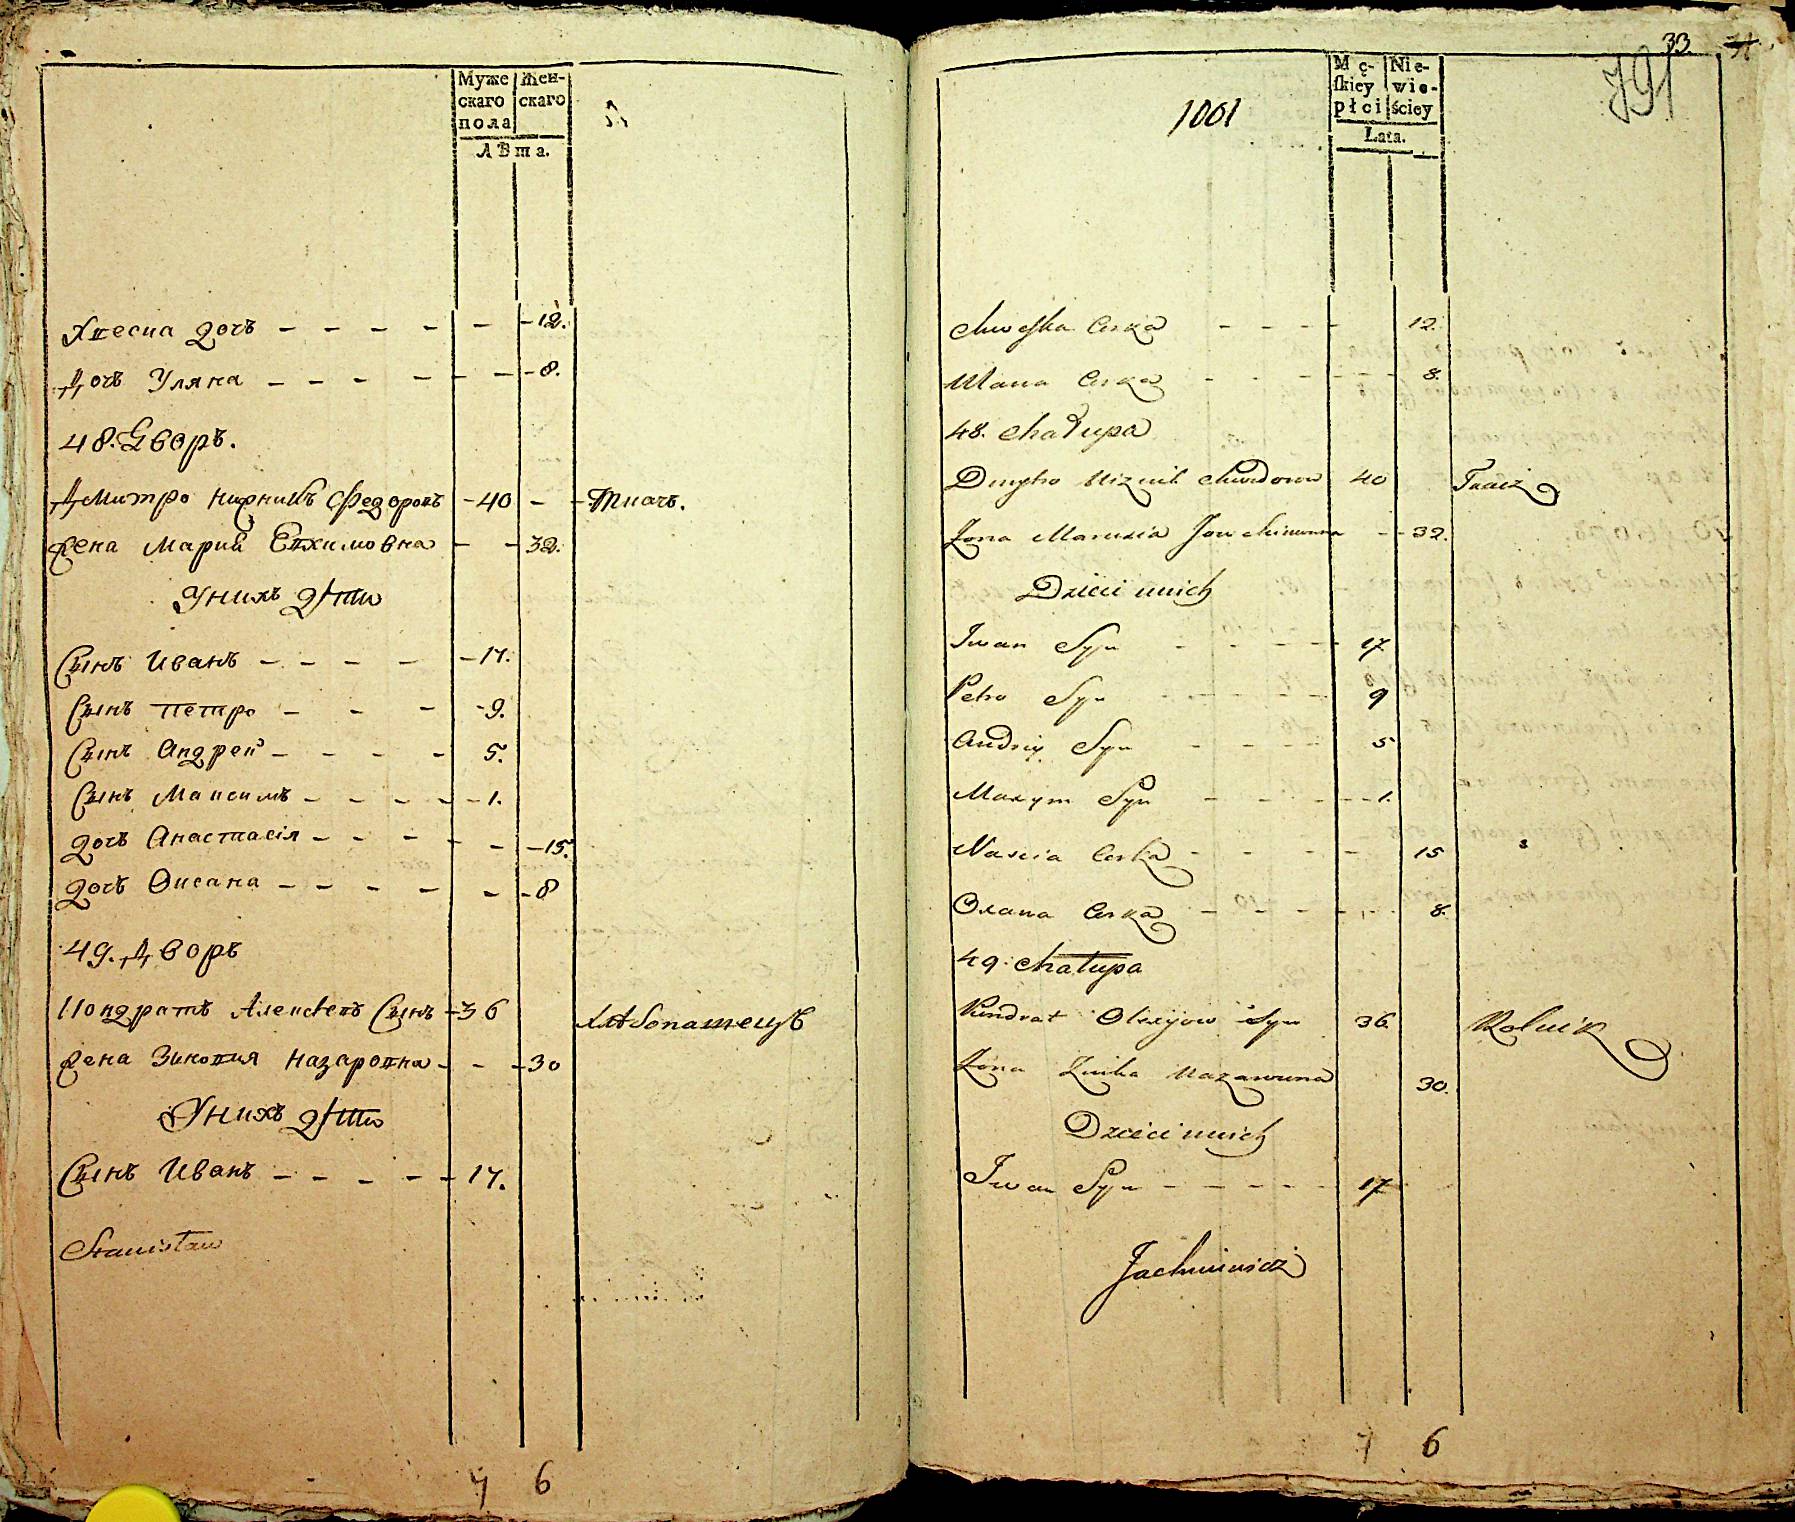 Муже Жен-
скаго скаго
пола
Лѣта.
Хвесна дочь - - - - - -12.
Дочь Уляна - - - - - - -8.
48. Дворъ.
Дмитро Нижникъ Федоровъ -40 - - Ткачь.
Жена Марий Евхимовна - - 32.
У нихъ дѣти
Сынъ Иванъ - - - - -17.
Сынъ Петро - - - -9.
Сынъ Андрей - - - - 5.
Сынъ Максимъ - - - - -1.
дочь Анастасія - - - - - -15.
дочь Оксана - - - - - -8
49. Дворъ
Кондратъ Алексѣевъ Сынъ -36 Хлѣбопашецъ
Жена Зиновия Назаровна - - -30
У нихъ дѣти
Сынъ Иванъ - - - - - 17.
Stanisław
7 6
33.
791
1001
Mę- Nie-
ſkiey wie-
płci ściey
Lata.
Chweſka Corka - - - - 12.
Ulana Corka - - - - - - 8.
48. Chałupa
Dmytro Niznik Chwedorow 40 Tkacz
Zona Marusia Jowchimowna - - 32.
Dzieci unich
Iwan Syn - - - - 17
Petro Syn - - - - 9
Andriy Syn - - - - 5
Maxym Syn - - - - - 1.
Nascia Corka - - - - 15
Oxana Corka - - - - - - 8.
49. Chałupa
Kindrat Olexijow Syn 36. Rolnik
Zona Zinka Nazarowna 30.
Dzieci unich
Iwan Syn - - - - - 17
Jachimowicz
7 6